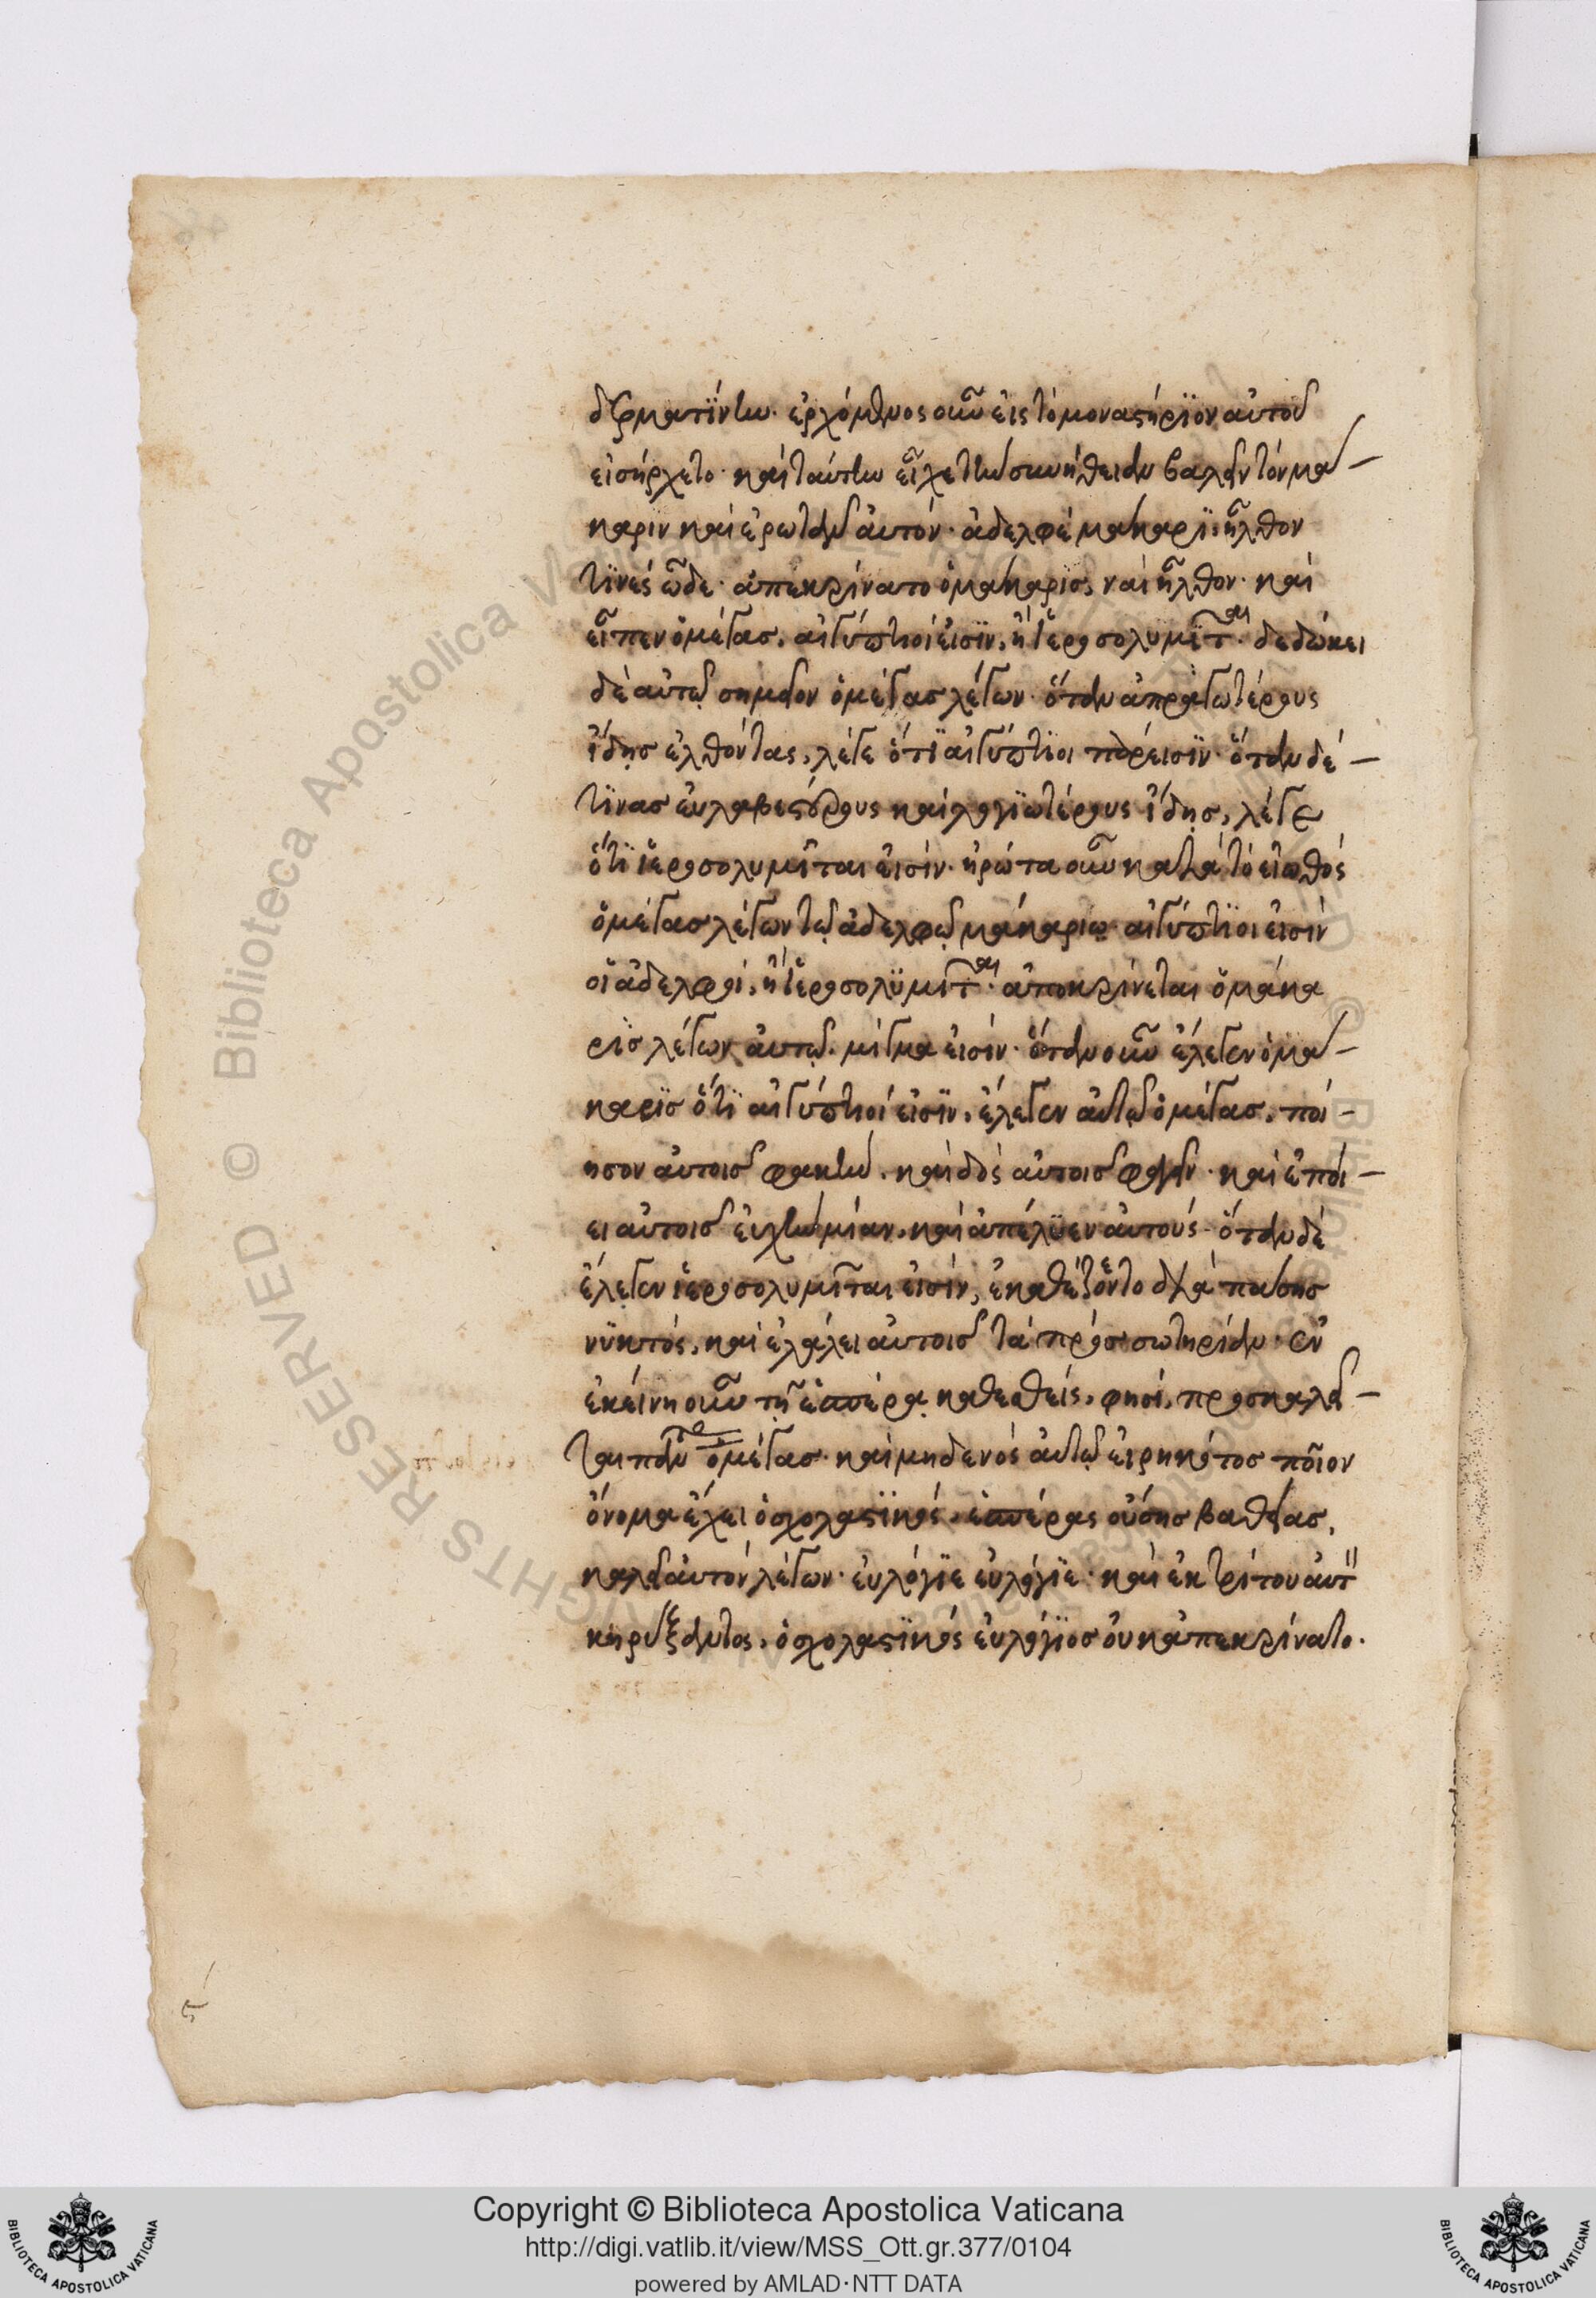 δερματίνην. ἐρχόμενος οὖν εἰς τὸ μοναστήριον αὐτοῦ
εἰσήρχετο. καὶ ταύτην εἶχε τὴν συνήθειαν βαλεῖν τὸν μα—
καριν καὶ ἐρωτᾶν αὐτόν. ἀδελφὲ μακαρϊ, ἦλθον
τινὲς ὧδε. ἀπεκρίνατο ὁ μακαρις, ναὶ ἦλθον. καὶ
εἶπεν ὁ μέγας, αἰγύπτιοί εἰσϊν, ἢ ἱεροσολυμῖται. δεδώκει
δὲ αὐτῷ σημεῖον ὁ μέγας λέγων. ὅταν ἀπραγωτέρους
ἴδης ἐλθόντας, λέγε ὅτϊ αἰγύπτϊοι πάρεισϊν. ὅταν δέ—
τϊνας εὐλαβεστέρους καὶ λογϊωτέρους ἴδης, λέγε
ὅτϊ ἱεροσολυμῖται εἰσίν. ἠρώτα οὖν κατὰ τὸ εἰωθός
ὁ μέγας λέγων τῷ ἀδελφῷ μακαρίῳ. αἰγύπτϊοι εἰσίν
οἱ ἀδελφοί, ἢ ἱεροσολϋμῖται. ἀποκρίνεται ὁ μάκα
ρϊς λέγων αὐτῷ. μίγμα εἰσίν. ὅταν οὖν ἔλεγεν ὁ μα—
καρϊς ὅτϊ αἰγύπτιοί εἰσϊν, ἔλεγεν αὐτῷ ὁ μέγας, ποί—
ησον αὐτοῖς φακὴν. καὶ δὸς αὐτοῖς φαγεῖν. καὶ ἐποί—
ει αὐτοῖς εὐχὴν μίαν, καὶ ἀπέλϋεν αὐτούς. ὅταν δὲ
ἔλεγεν ἱεροσολυμῖται εἰσίν, ἐκαθέζετο διὰ πάσης
νϋκτός, καὶ ἐλάλει αὐτοῖς τὰ πρὸς σωτηρίαν. ἐν
ἐκείνη οὖν τῇ ἑσπέρᾳ καθεσθείς, φησί, προσκαλεῖ—
ται πάντας ὁ μέγας. καὶ μηδενὸς αὐτῷ εἰρηκότος ποῖον
ὄνομα ἔχει ὁ σχολαστϊκός, ἑσπέρας οὔσης βαθείας,
καλεῖ αὐτὸν λέγων. εὐλόγϊε εὐλόγϊε. καὶ ἐκ τρίτου αὐτ
κηρύξαντος, ὁ σχολαστϊκός εὐλόγϊος οὐκ ἀπεκρίνατο.
5
Copyright © Biblioteca Apostolica Vaticana
http://digi.vatlib.it/view/MSS_Ott.gr.377/0104
powered by AMLAD·NTT DATA